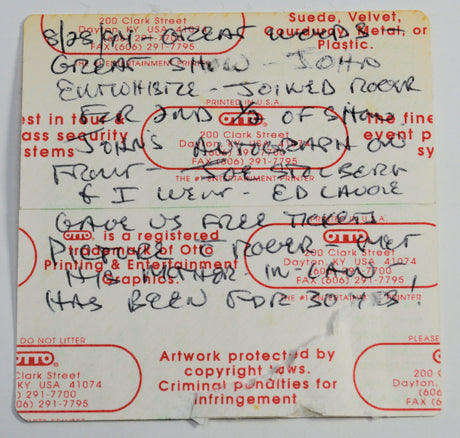 200 Clark Street
Dayton, KY 41074
FAX (606) 291-7795
Suede, Velvet,
Corduroy, Metal, or
Plastic.
8/28/94 - GREAT WOODS
GREAT SHOW - JOHN
THE #1 ENTERTAINMENT PRINTER
ENTWHISTLE - JOINED ROGER
PRINTED IN U.S.A.
FOR 2ND 1/2 OF SHOW
est in tour &
ass security
stems
OTTO
200 Clark Street
Dayton, KY USA 41074
FAX (606) 291-7795
THE #1 ENTERTAINMENT PRINTER
he fine
event p
sy
JOHN'S AUTOGRAPH ON
FRONT - JOE
& I WENT ED
GAVE US FREE TICKETS
PRINTED IN U.S.A.
OTTO is a registered
trademark of Otto
Printing & Entertainment
Graphics.
OTTO
ROGER - MET
HIS FATHER IN-LAW
KY USA 41074
291-7700
FAX (606) 291-7795
THE #1 ENTERTAINMENT PRINTER
HAS BEEN FOR 30 YRS!
DO NOT LITTER
OTTO
Clark Street
KY USA 41074
6) 291-7700
06) 291-7795
Artwork protected by
copyright laws.
Criminal penalties for
infringement
PLEASE
200 C
Dayton,
(60
FAX (6